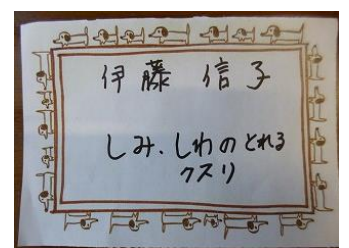 伊藤 信子
しみ、しわのとれる
クスリ